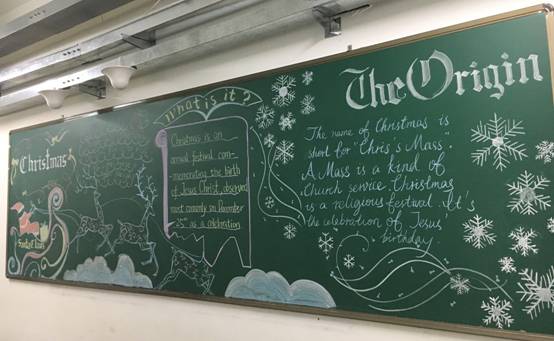 Christmas
Santa Claus
What is it?
Christmas is an
annual festival com-
memorating the birth
of Jesus Christ, observed
most commonly on December
25 as a celebration
The Origin
The name of Christmas is
short for "Chris's Mass".
A Mass is a kind of
Church service. Christmas
is a religious festival. It's
the celebration of Jesus'
birthday